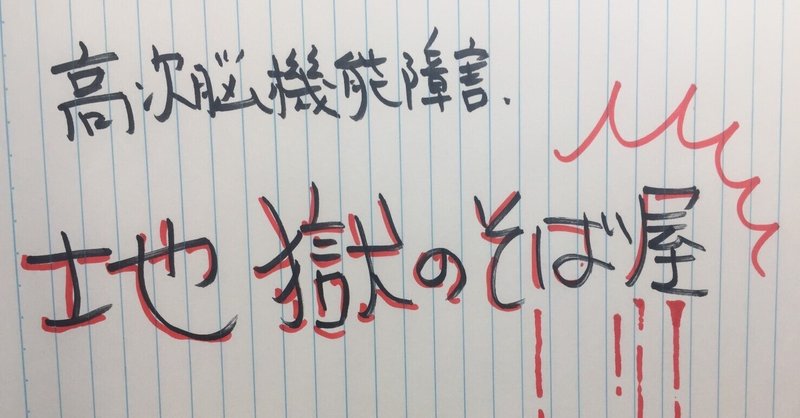 高次脳機能障害.
地獄のそば屋